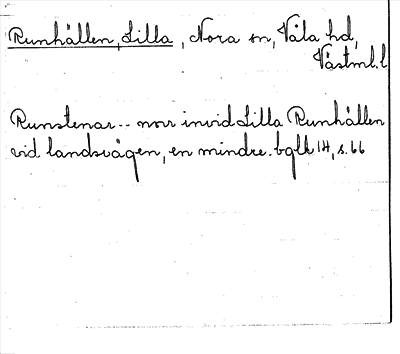 Runhällen, Lilla, Nora sn, Våla hd,
Västml. l
Runstenar -- norr invid Lilla Runhällen
vid landsvägen, en mindre. bglh 14, s. 66